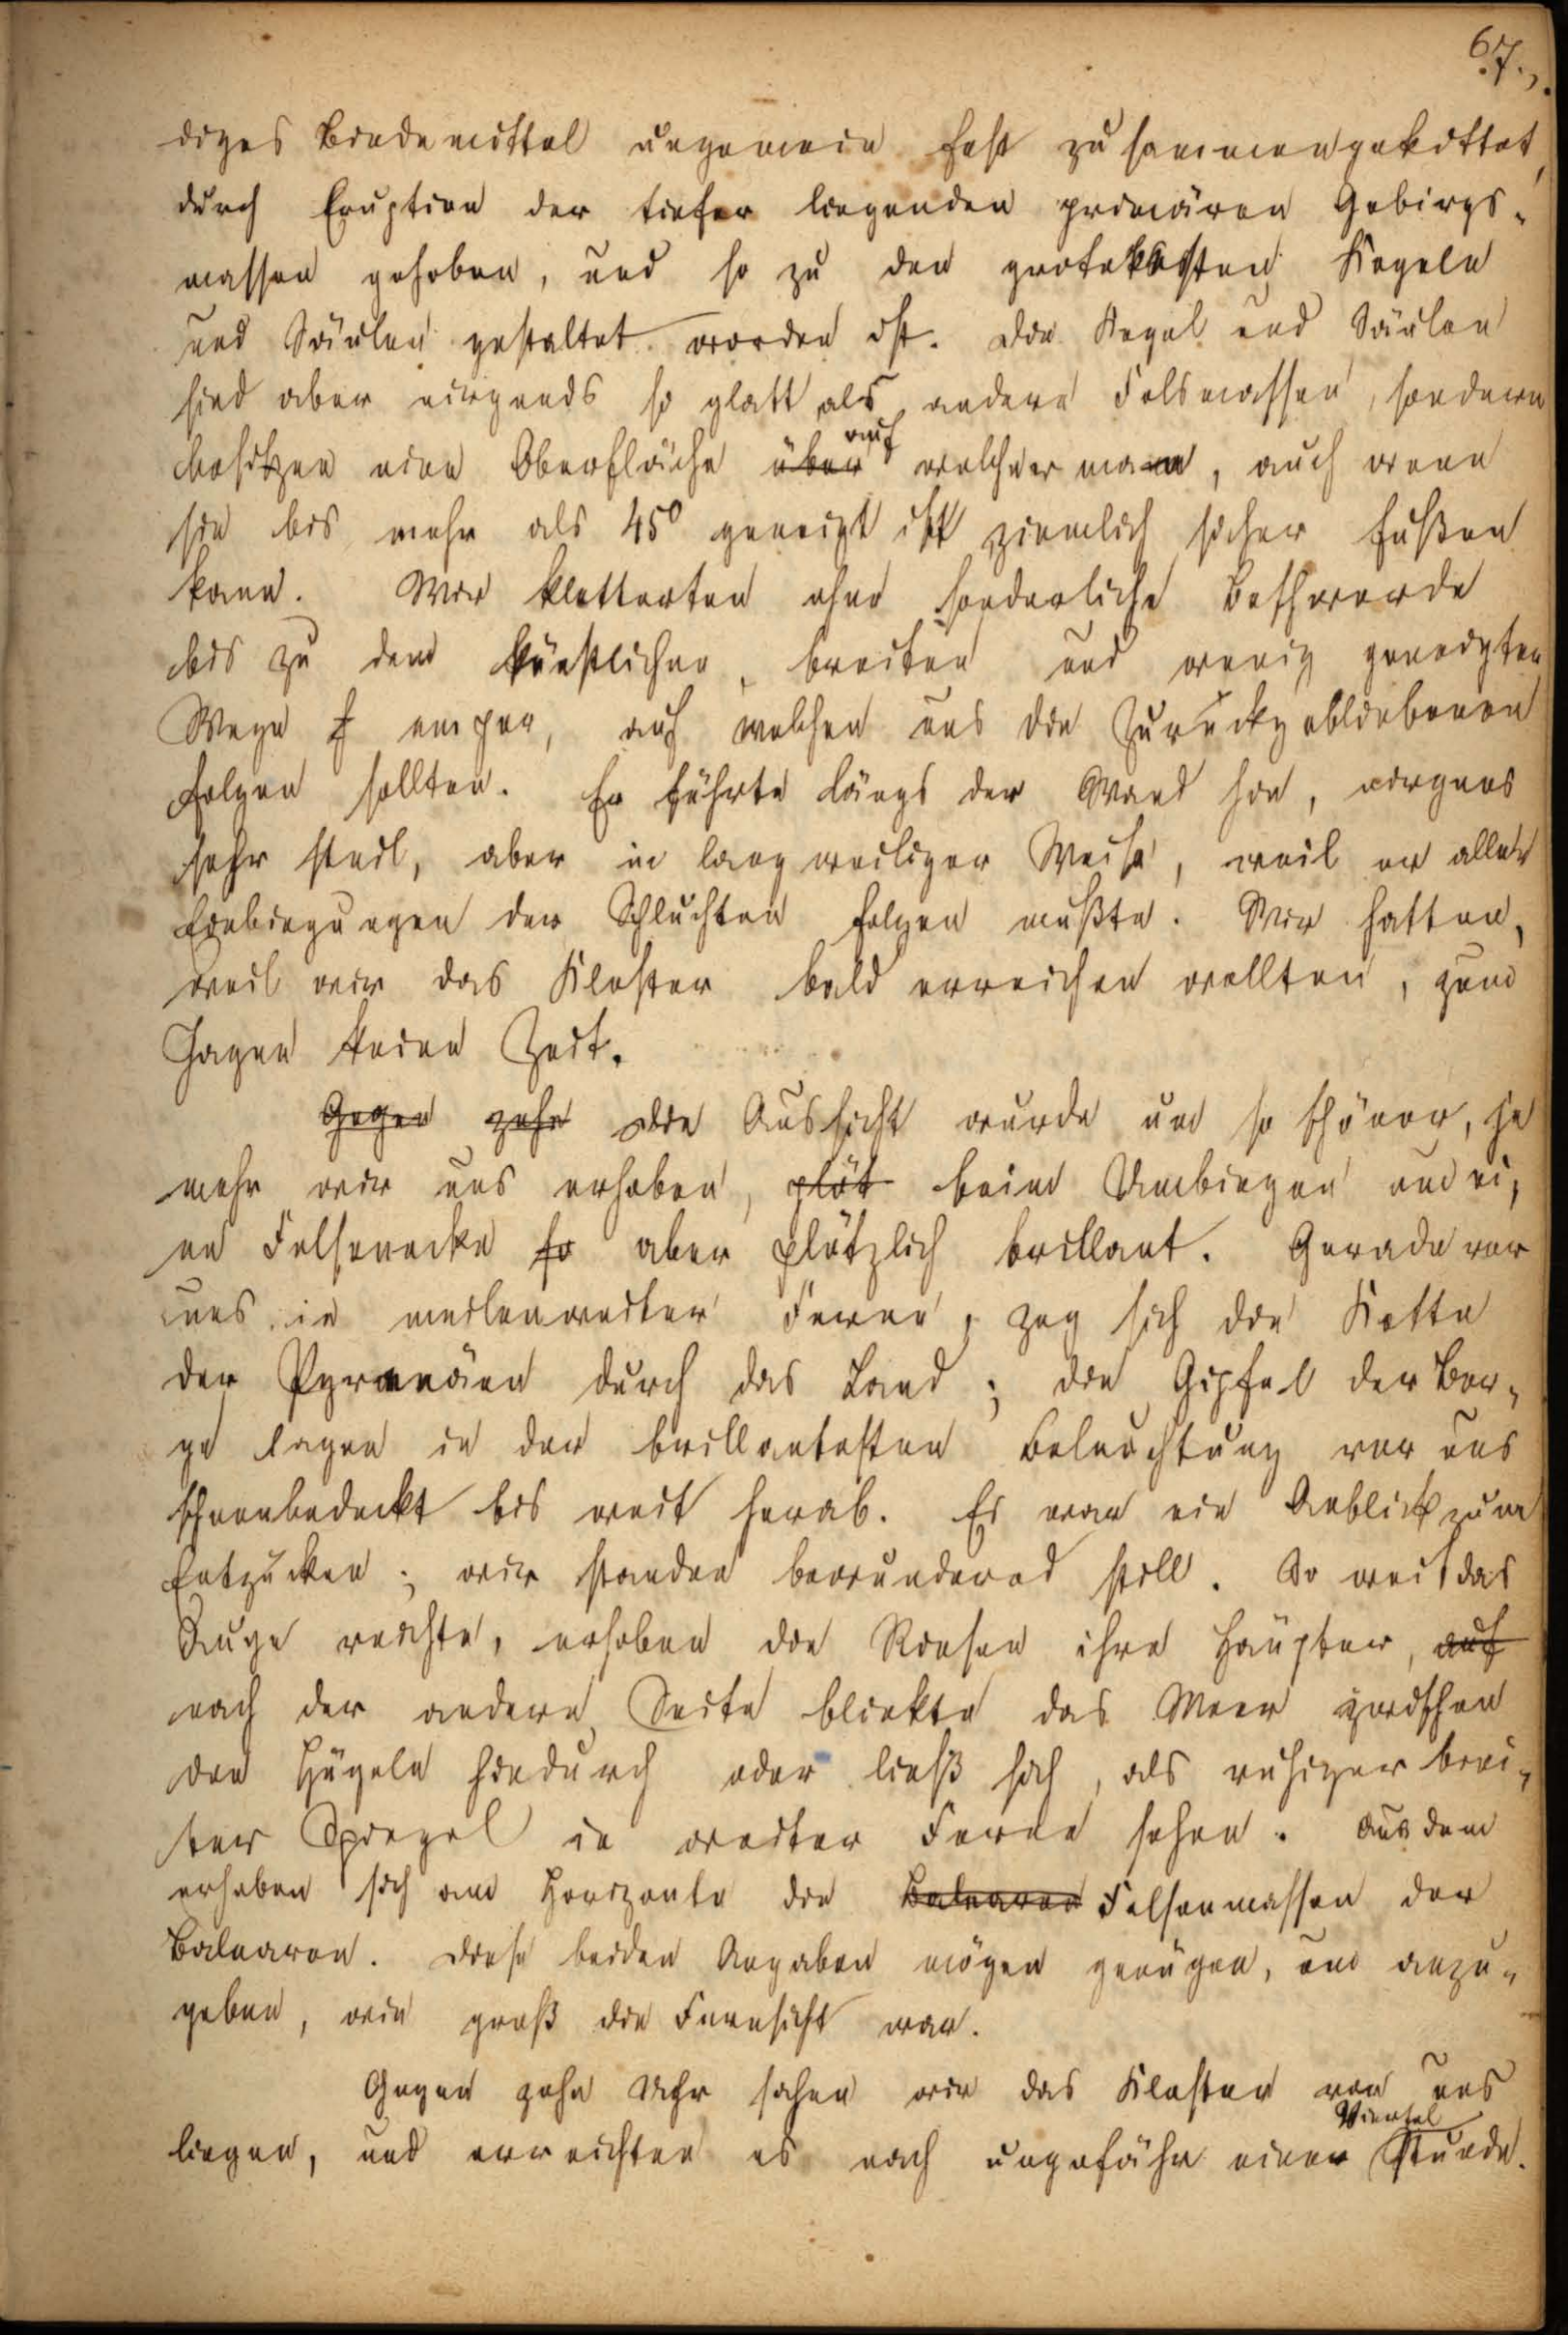 67.
diges Bindemittel ungemein fest zusammengekittet,
durch Eruption der tiefer liegenden primären Gebirgs-
massen gehoben, und so zu den grotekesten Kegeln
und Säulen gestaltet worden ist. Die Kegel und Säulen
sind aber nirgends so glatt als andere Felsmassen, sondern
besitzen eine Oberfläche über auf welcher man, auch wenn
sie bis mehr als 45° geneigt ist ziemlich sicher fußen
kann. Wir kletterten ohne sonderliche Beschwerde
bis zu dem künstlichen, breiten und wenig geneigten
Wege empor, auf welchen uns die Zurückgebliebenen
folgen sollten. Er führte längs der Wand hin, nirgens
sehr steil, aber in langweiliger Weise, weil er allen
Einbiegungen der Schluchten folgen mußte. Wir hatten,
weil wir das Kloster bald erreichen wollten, zum
Jagen keine Zeit.
Gegen zehn Die Aussicht wurde um so schöner, je
mehr wir uns erhoben, plöt beim Umbiegen um ei-
ne Felsenecke so aber plötzlich brillant. Gerade vor
uns in meilenweiter Ferne, zog sich die Kette
der Pyrenäen durch das Land; die Gipfel der Ber-
ge lagen in der brillantesten Beleuchtung vor uns
schneebedeckt bis weit herab. Es war ein Anblick zum
Entzücken; wir standen bewundernd still. So weit das
Auge reichte, erhoben die Riesen ihre Häupter, auf
nach der andern Seite blickte das Meer zwischen
den Hügeln hindurch oder ließ sich, als ruhiger brei-
ter Spiegel in weiter Ferne sehen. Aus dem
erhoben sich am Horizonte die Balearen Felsenmassen der
Balearen. Diese beiden Angaben mögen genügen, um anzu-
geben, wie groß die Fernsicht war.
Gegen zehn Uhr sahen wir das Kloster vor uns
liegen, und erreichten es nach ungefähr einer Viertel Stunde.